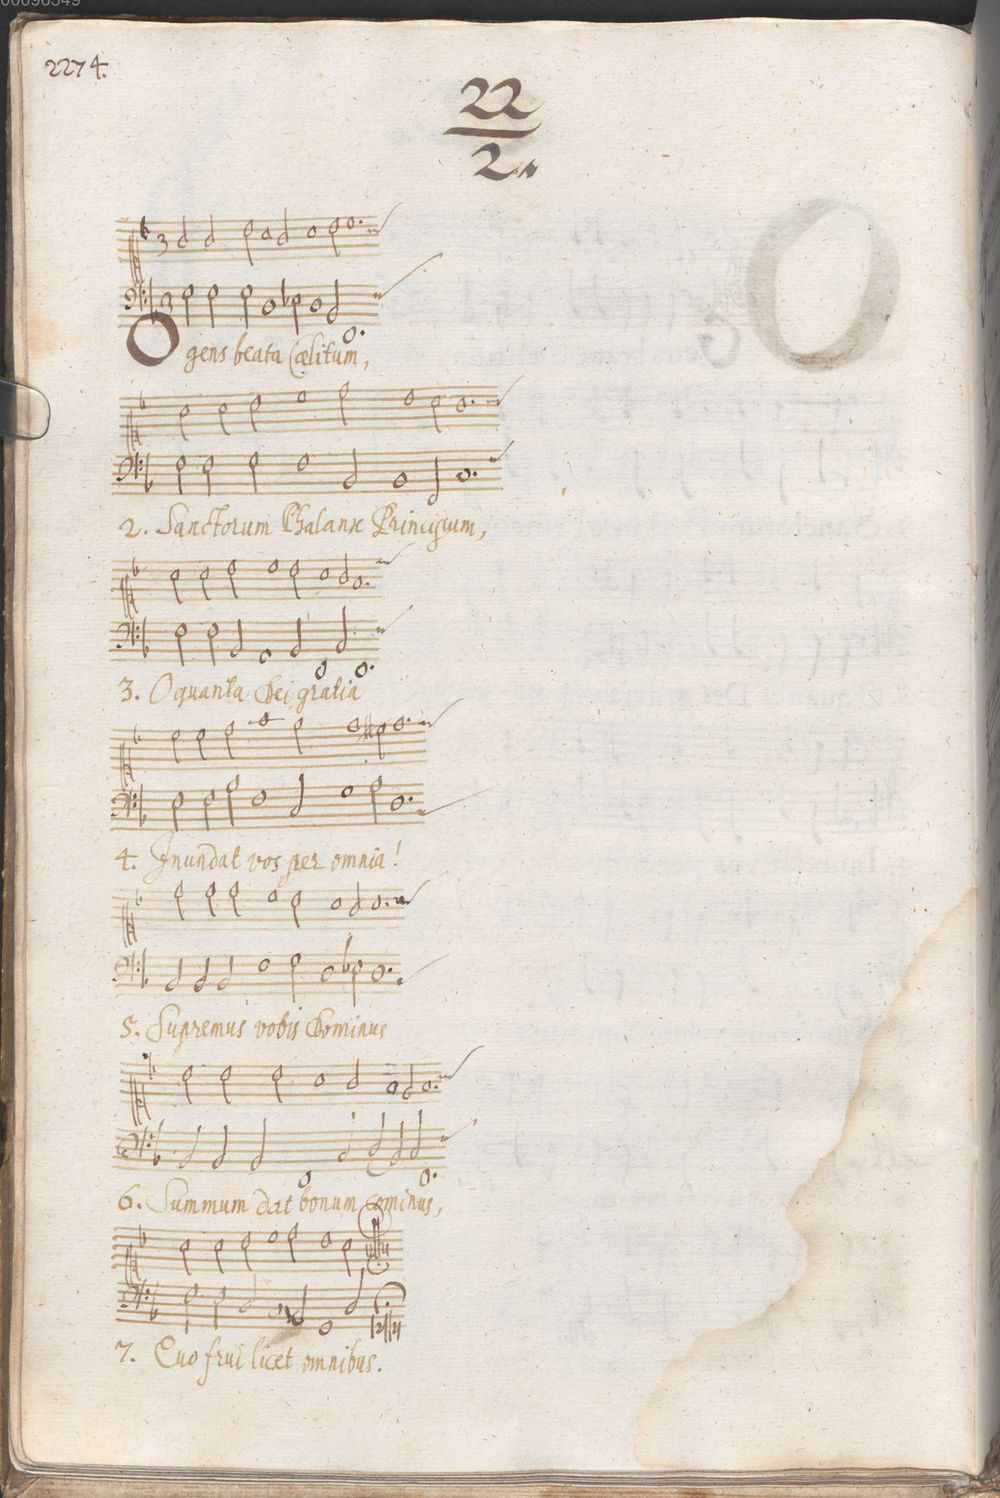 00096349
2274.
22
2.
O gens beata Cælitum,
2. Sanctorum Phalanx Principum,
3. O quanta Dei gratia
4. Inundat vos per omnia!
5. Supremus vobis Dominus
6. Summum dat bonum cominus,
7. Quo frui licet omnibus.